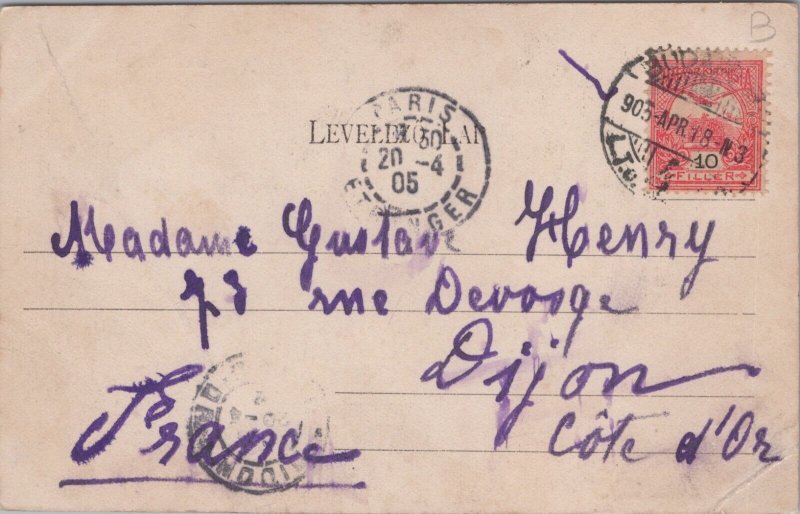 B
10
FILLER
905 APR. 18
PARIS
30
20 -4
05
ETRANGER
LEVELEZŐ-LAP
Madame Gustave Henry
73 rue Devosge
Dijon
Côte d'Or
France